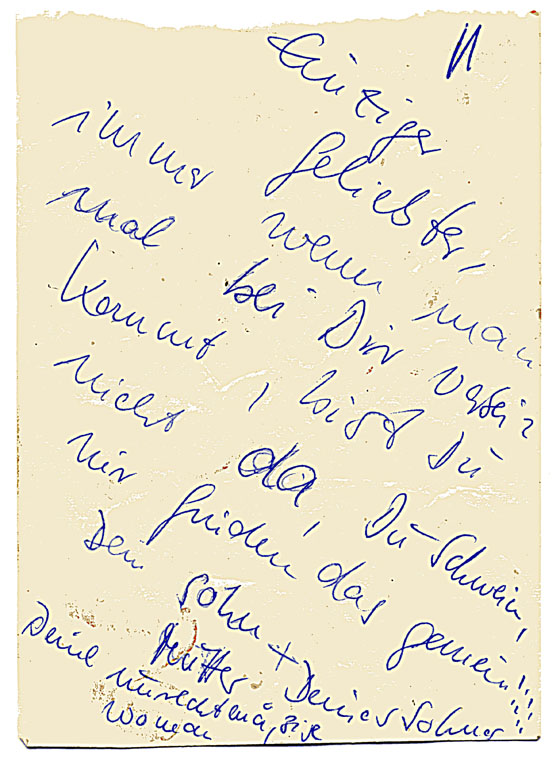 Einziger
Geliebter,
immer wenn man
mal bei Dir vorbei
kommt, bist Du
nicht da, Du Schwein,
wir finden das gemein!!!
Dein Sohn +
Mutter Deines Sohnes
Deine unrechtmäßige
woman